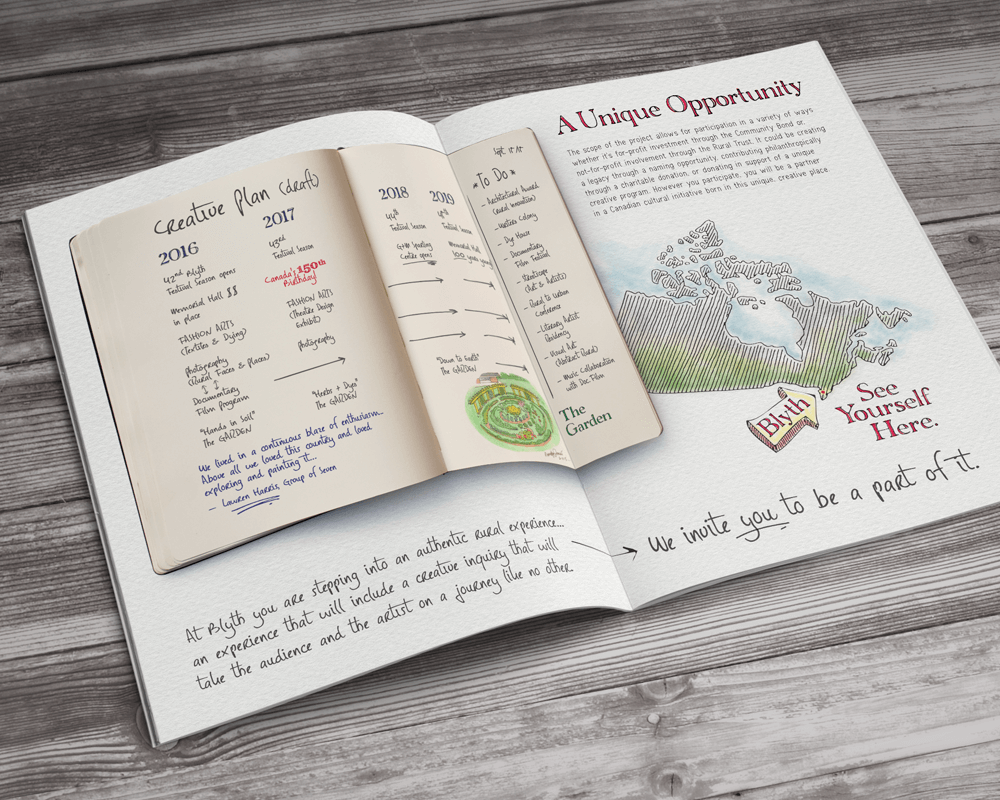 Creative Plan (draft)
2016
42nd Blyth
Festival Season opens
Memorial Hall $$
in place
FASHION ARTS
(Textiles & Dying)
photography
(Rural Faces & Places)
Documentary
Film program
"Hands in Soil"
The GARDEN
2017
43rd
Festival Season
Canada's 150th
Birthday!
FASHION ARTS
(Theatre Design
Exhibit)
photography
"Herbs + Dyes"
The GARDEN
We lived in a continuous blaze of enthusiasm...
Above all we loved this country and loved
exploring and painting it...
- Lawren Harris, Group of Seven
2018
44th
Festival Season
Centre opens
"Down to Earth"
The GARDEN
2019
Festival Season
Memorial Hall
100 years
Sept
*To Do*
- Architectural Award
(Rural Innovation)
- Writers Colony
- Dye House
- Documentary
Film Festival
(Art & Artists)
- Rural to Urban
Conference
- Literary Artist
Residency
- Visual Art
(Abstract Rural)
- Music Collaboration
with Doc Film
The
Garden
At Blyth you are stepping into an authentic rural experience...
an experience that will include a creative inquiry that will
take the audience and the artist on a journey like no other.
A Unique Opportunity
The scope of the project allows for participation in a variety of ways
whether it's for-profit investment through the Community Bond or
not-for-profit involvement through the Rural Trust. It could be creating
a legacy through a naming opportunity, contributing philanthropically
through a charitable donation, or donating in support of a unique
creative program. However you participate, you will be a partner
in a Canadian cultural initiative born in this unique, creative place.
Blyth
See
Yourself
Here.
We invite you to be a part of it.